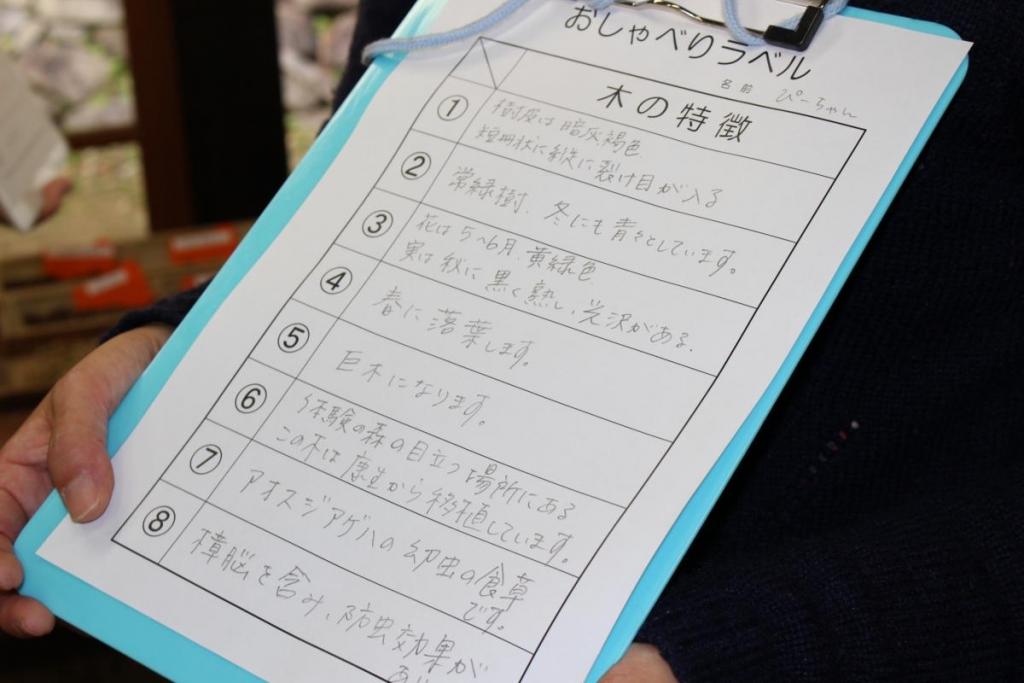 おしゃべりラベル
名前 ぴーちゃん
木の特徴
① 樹皮は暗灰褐色
短冊状に縦に裂け目が入る
② 常緑樹、冬にも青々としています。
③ 花は5~6月、黄緑色
実は秋に黒く熟し、光沢がある。
④ 春に落葉します。
⑤ 巨木になります。
⑥ 体験の森の目立つ場所にある
この木は康生から移植しています。
⑦ アオスジアゲハの幼虫の食草
です。
⑧ 樟脳を含み、防虫効果が
あり